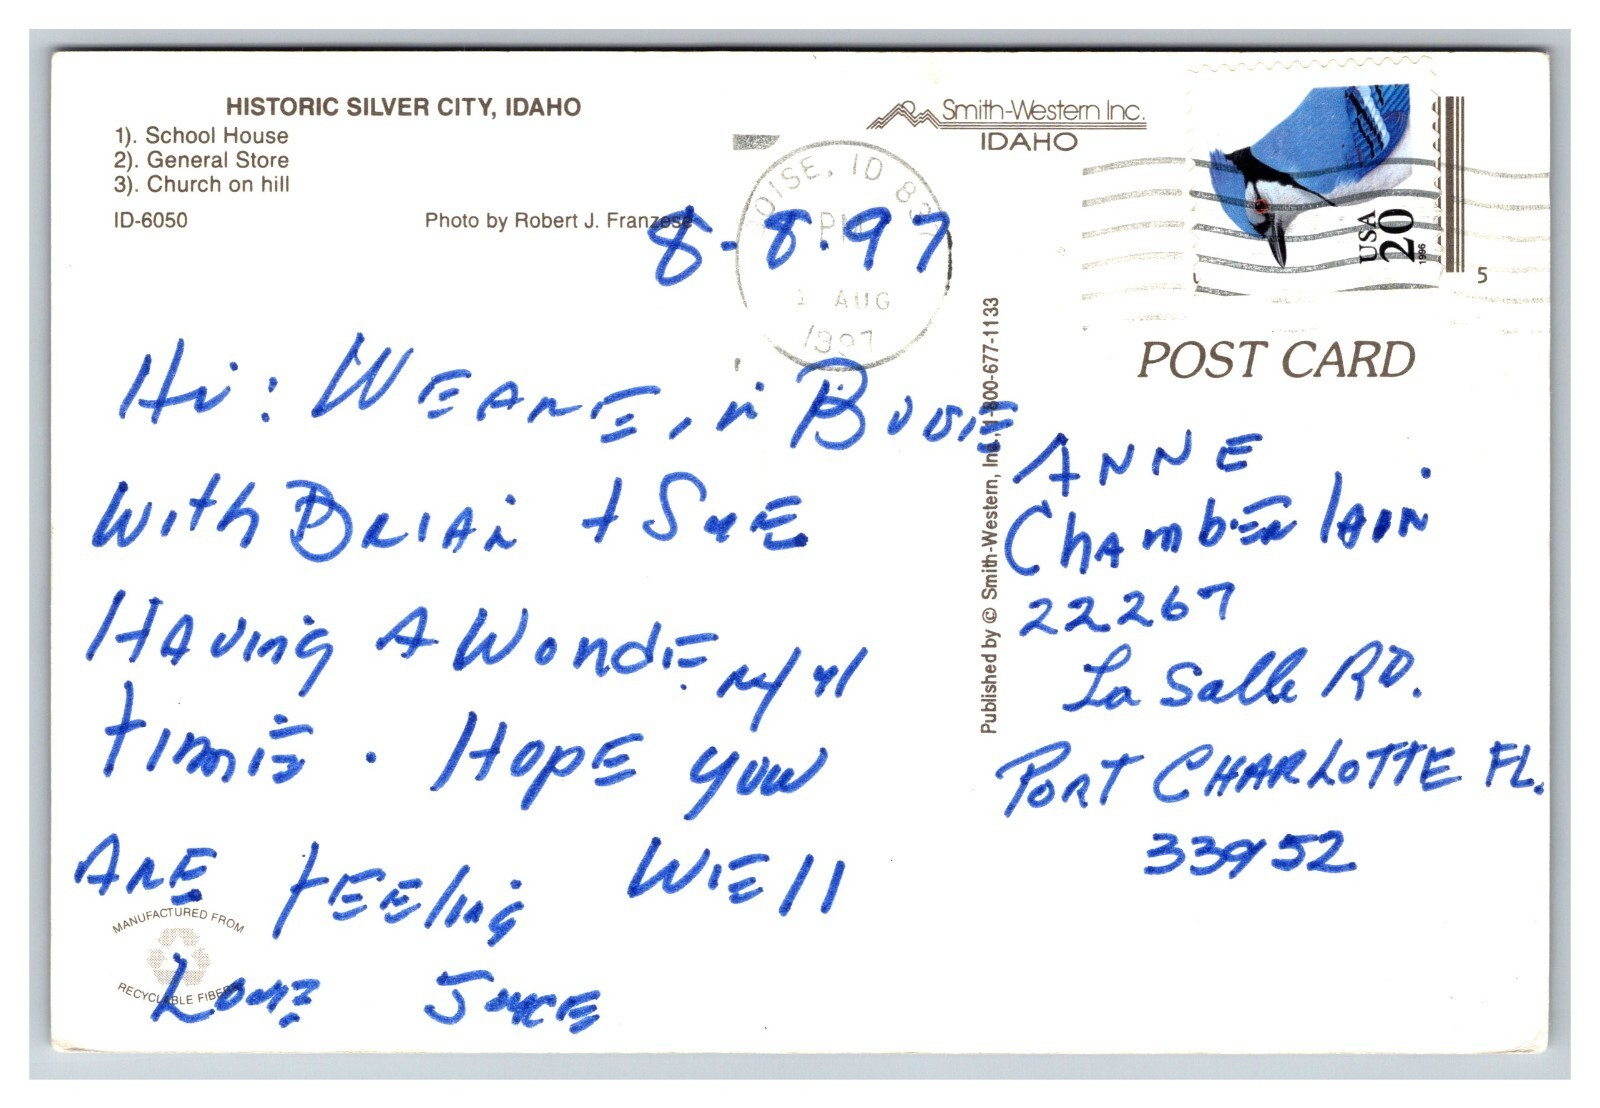 HISTORIC SILVER CITY, IDAHO
1). School House
2). General Store
3). Church on hill
ID-6050
Photo by Robert J. Franzese
Smith-Western Inc.
IDAHO
OISE, ID 83
PM
AUG
1997
USA
20
1996
5
8-8.97
POST CARD
Published by © Smith-Western, Inc., 1-800-677-1133
Hi: WE ARE, in
With BRIAN + SUE
HAVING A WONDERful
timE. HopE you
ARE fEEling WEll
LovE Joyce
ANNE
ChambERlAin
22267
La Salle RD.
PORT CHARLOTTE FL.
33952
MANUFACTURED FROM
RECYCLABLE FIBERS